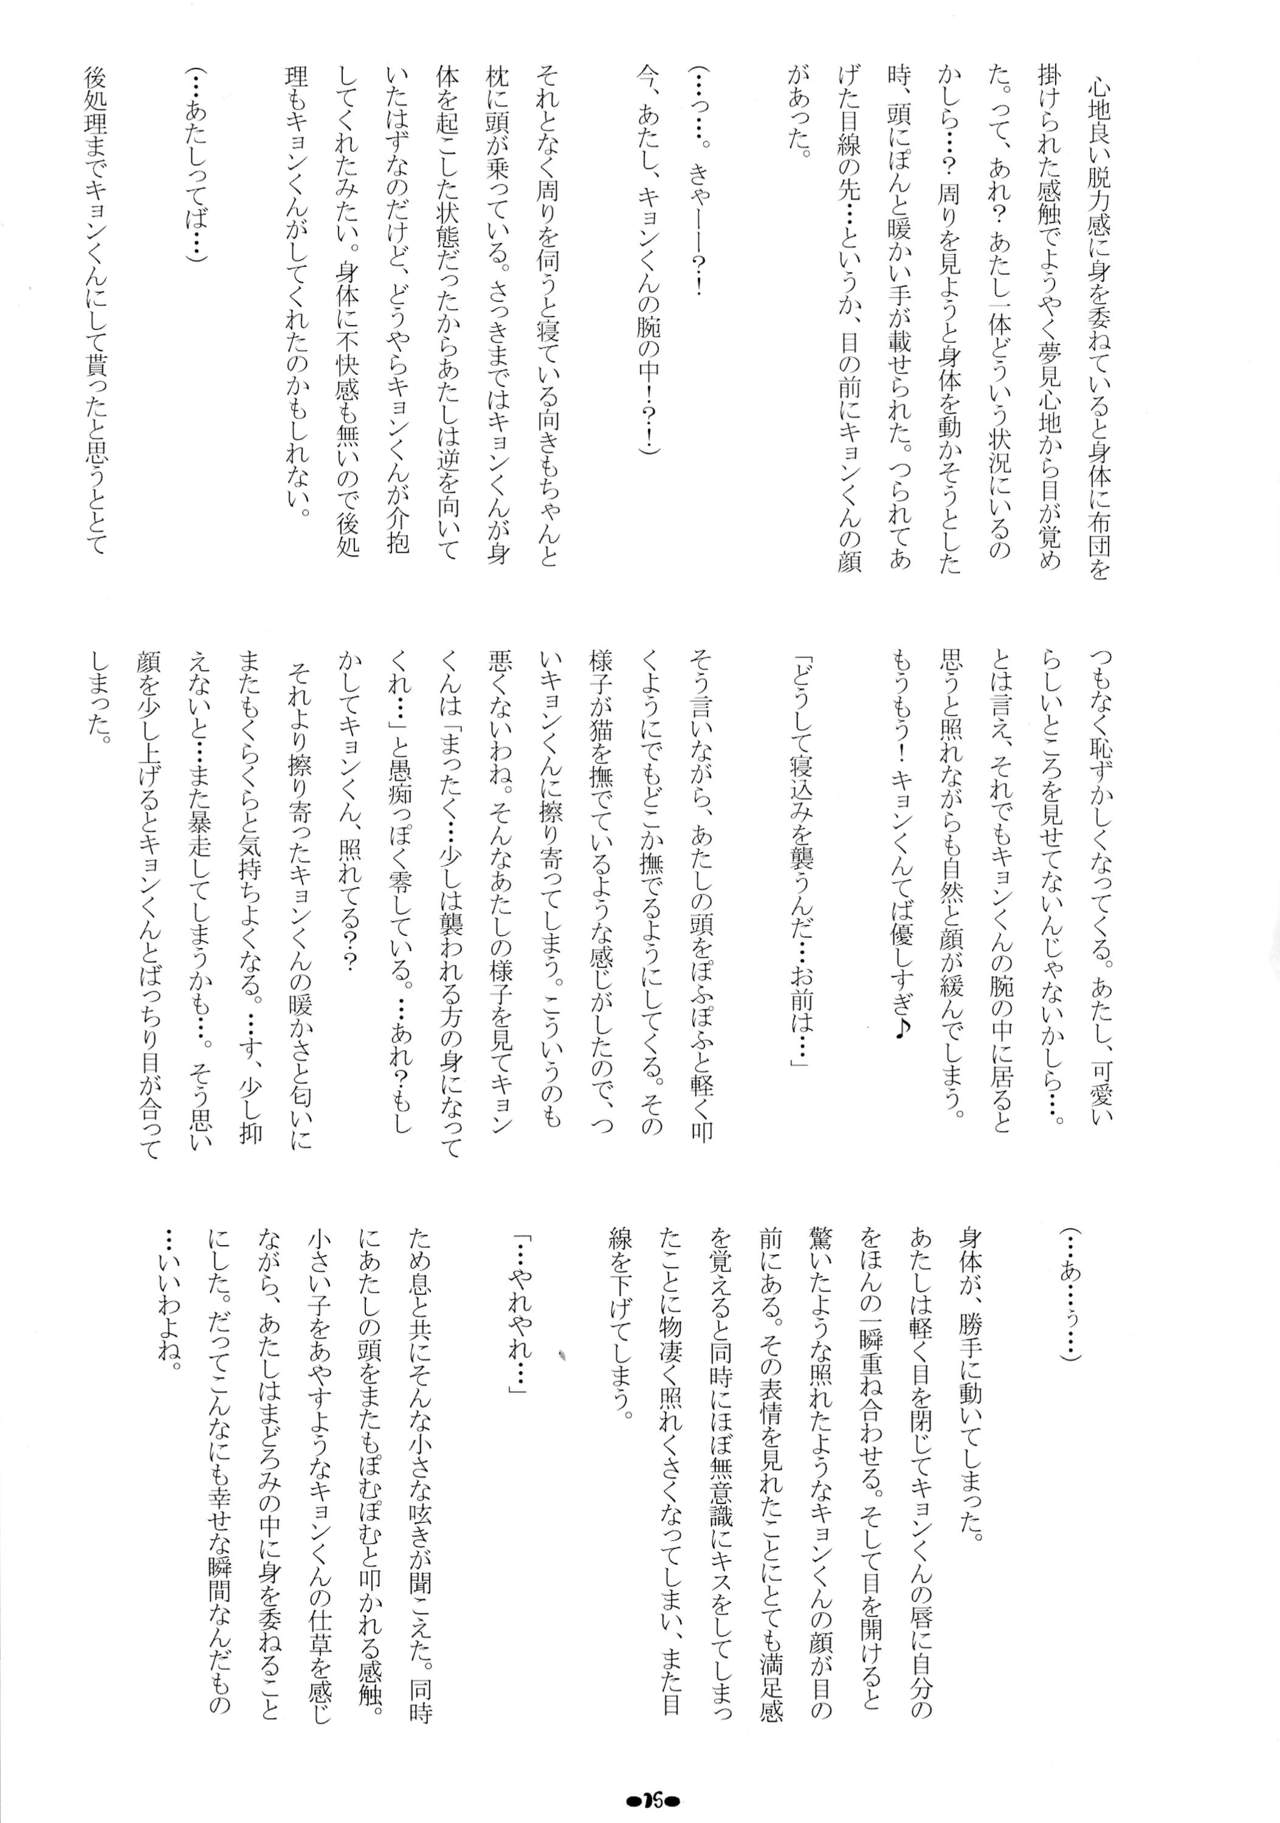 心地良い脱力感に身を委ねていると身体に布団を
掛けられた感触でようやく夢見心地から目が覚め
た。って、あれ？あたし一体どういう状況にいるの
かしら…？周りを見ようと身体を動かそうとした
時、頭にぽんと暖かい手が載せられた。つられてあ
げた目線の先…というか、目の前にキョンくんの顔
があった。
(…っ…。きゃーー？！
今、あたし、キョンくんの腕の中！？！)
それとなく周りを伺うと寝ている向きもちゃんと
枕に頭が乗っている。さっきまではキョンくんが身
体を起こした状態だったからあたしは逆を向いて
いたはずなのだけど、どうやらキョンくんが介抱
してくれたみたい。身体に不快感も無いので後処
理もキョンくんがしてくれたのかもしれない。
(…あたしってば…)
後処理までキョンくんにして貰ったと思うととて
つもなく恥ずかしくなってくる。あたし、可愛い
らしいところを見せてないんじゃないかしら…。
とは言え、それでもキョンくんの腕の中に居ると
思うと照れながらも自然と顔が緩んでしまう。
もうもう！キョンくんてば優しすぎ♪
「どうして寝込みを襲うんだ…お前は…」
そう言いながら、あたしの頭をぽふぽふと軽く叩
くようにでもどこか撫でるようにしてくる。その
様子が猫を撫でているような感じがしたので、つ
いキョンくんに擦り寄ってしまう。こういうのも
悪くないわね。そんなあたしの様子を見てキョン
くんは「まったく…少しは襲われる方の身になって
くれ…」と愚痴っぽく零している。…あれ？もし
かしてキョンくん、照れてる？？
それより擦り寄ったキョンくんの暖かさと匂いに
またもくらくらと気持ちよくなる。…す、少し抑
えないと…また暴走してしまうかも…。そう思い
顔を少し上げるとキョンくんとばっちり目が合って
しまった。
(…あ…ぅ…)
身体が、勝手に動いてしまった。
あたしは軽く目を閉じてキョンくんの唇に自分の
をほんの一瞬重ね合わせる。そして目を開けると
驚いたような照れたようなキョンくんの顔が目の
前にある。その表情を見れたことにとても満足感
を覚えると同時にほぼ無意識にキスをしてしまっ
たことに物凄く照れくさくなってしまい、また目
線を下げてしまう。
「…やれやれ…」
ため息と共にそんな小さな呟きが聞こえた。同時
にあたしの頭をまたもぽむぽむと叩かれる感触。
小さい子をあやすようなキョンくんの仕草を感じ
ながら、あたしはまどろみの中に身を委ねること
にした。だってこんなにも幸せな瞬間なんだもの
…いいわよね。